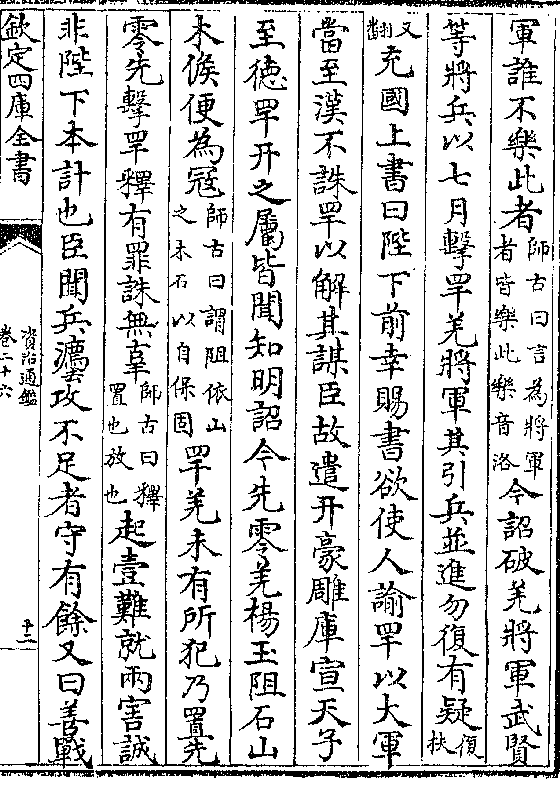 軍誰不樂此者師古曰言為將軍者皆樂此樂音洛今詔破羌將軍武賢
等將兵以七月擊䍐羌將軍其引兵並進勿復有疑復扶
又翻充國上書曰陛下前幸賜書欲使人諭䍐以大軍
當至漢不誅䍐以解其謀臣故遣幵豪雕庫宣天子
至徳䍐幵之屬皆聞知明詔今先零羌楊玉阻石山
木候便為寇師古曰謂阻依山之木石以自保固䍐羌未有所犯乃置先
零先擊䍐釋有罪誅無辜師古曰釋置也放也起壹難就兩害誠
非陛下本計也臣聞兵灋攻不足者守有餘又曰善戰
欽定四庫全書
資治通鑑
卷二十六